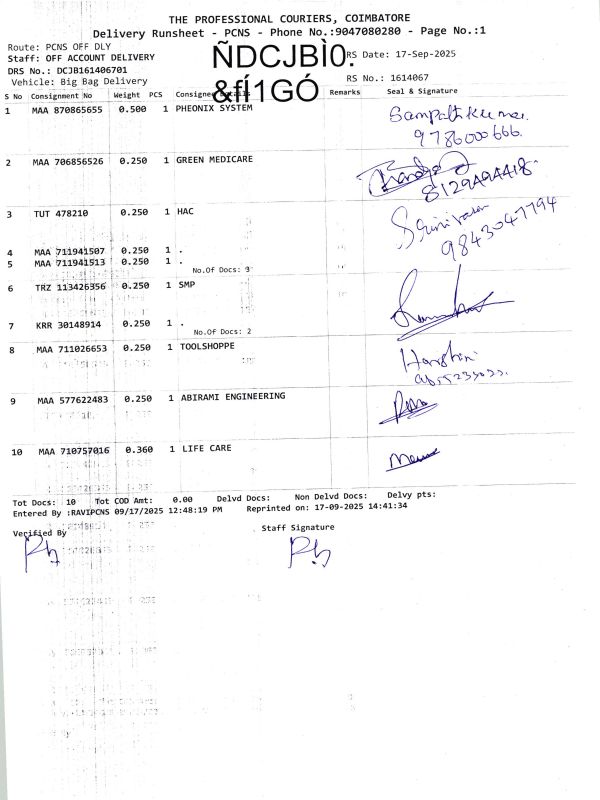 THE PROFESSIONAL COURIERS, COIMBATORE
Delivery Runsheet - PCNS - Phone No.:9047080280 - Page No.:1
Route: PCNS OFF DLY
Staff: OFF ACCOUNT DELIVERY
DRS No.: DCJB161406701
Vehicle: Big Bag Delivery
ÑDCJBÌ0.
&fÍ1GÓ
RS Date: 17-Sep-2025
RS No.: 1614067
S No Consignment No Weight PCS Consignee Details Remarks Seal & Signature
1 MAA 870865655 0.500 1 PHEONIX SYSTEM Sampath Kumar
9786000666.
2 MAA 706856526 0.250 1 GREEN MEDICARE
3 TUT 478210 0.250 1 HAC
9843047794
4 MAA 711941507 0.250 1 .
5 MAA 711941513 0.250 1 .
No.Of Docs: 3
6 TRZ 113426356 0.250 1 SMP
7 KRR 30148914 0.250 1 .
No.Of Docs: 2
8 MAA 711026653 0.250 1 TOOLSHOPPE
9 MAA 577622483 0.250 1 ABIRAMI ENGINEERING
10 MAA 710757016 0.360 1 LIFE CARE
Tot Docs: 10 Tot COD Amt: 0.00 Delvd Docs: Non Delvd Docs: Delvy pts:
Entered By :RAVIPCNS 09/17/2025 12:48:19 PM Reprinted on: 17-09-2025 14:41:34
Verified By
Staff Signature